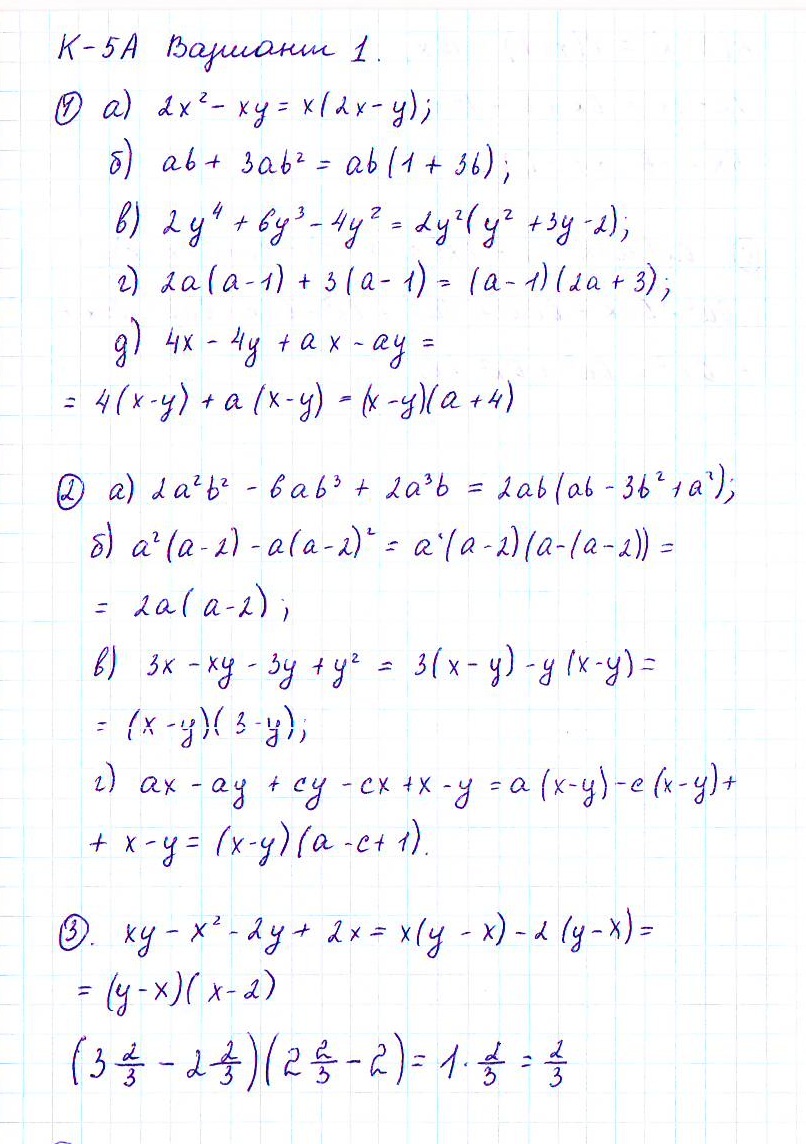 К-5А Вариант 1.
① а) 2x² - xy = x(2x-y);
б) ab + 3ab² = ab(1 + 3b);
в) 2y⁴ + 6y³ - 4y² = 2y²(y² + 3y - 2);
г) 2a(a-1) + 3(a-1) = (a-1)(2a+3);
д) 4x - 4y + ax - ay =
= 4(x-y) + a(x-y) = (x-y)(a+4)
② а) 2a²b² - 6ab³ + 2a³b = 2ab(ab - 3b² + a²);
б) a²(a-2) - a(a-2)² = a·(a-2)(a-(a-2)) =
= 2a(a-2);
в) 3x - xy - 3y + y² = 3(x-y) - y(x-y) =
= (x-y)(3-y);
г) ax - ay + cy - cx + x - y = a(x-y) - c(x-y) +
+ x - y = (x-y)(a - c + 1).
③. xy - x² - 2y + 2x = x(y - x) - 2(y-x) =
= (y-x)(x-2)
(3 2/3 - 2 2/3)(2 2/3 - 2) = 1 · 2/3 = 2/3